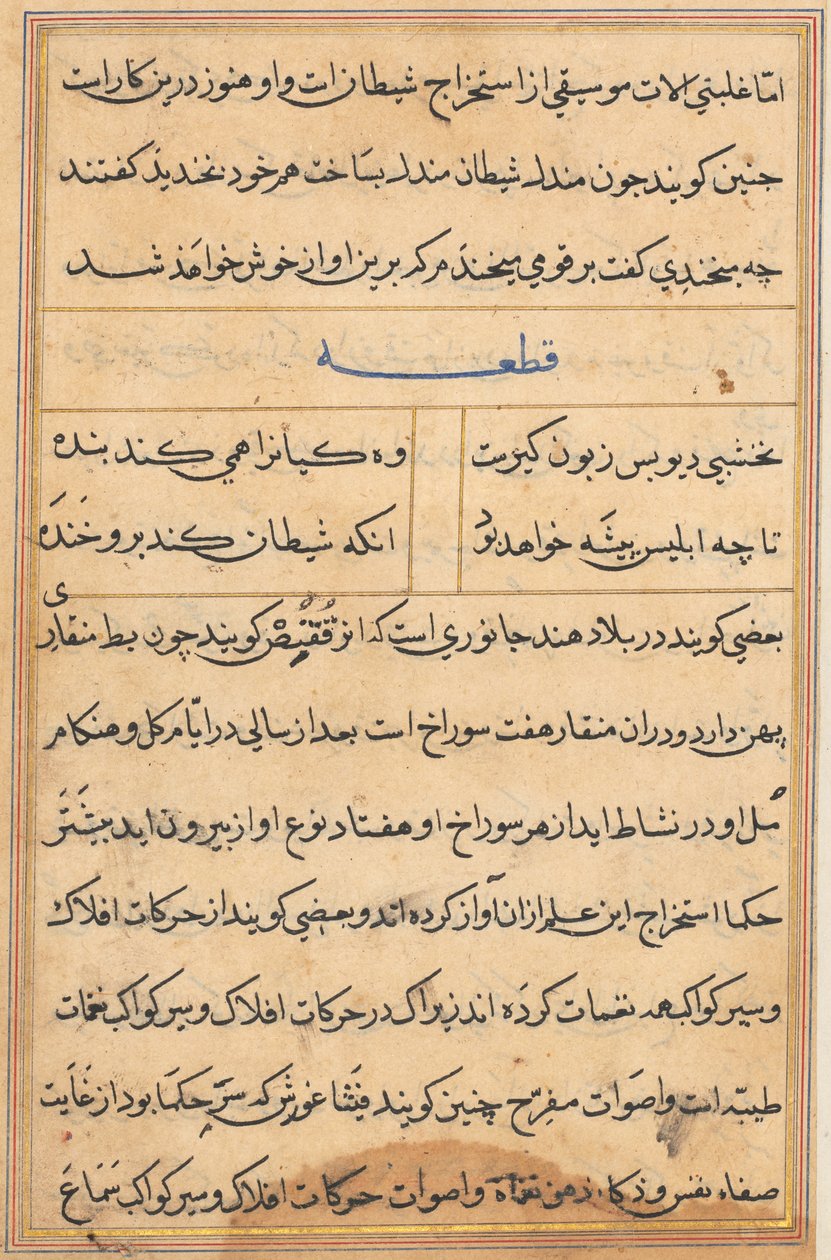 امّا غلبتي الات موسيقي از استخراج شيطان است و او هنوز درين كار است
چنين كويند چون مندل شيطان مندل بسَاخت هم خود بخنديدَ كفتند
چه ميخندِي كفت بر قومي ميخندَم كه برين اواز خوش خواهَند شد
قطعه
نخشبي ديو بس زبون كيرست
وه كيانرا همي كند بنده
تا چه ابليس پيشَه خواهد بوُد
انكه شيطان كند برو خَندَه
بعضي كويند در بلاد هند جانوري است كه انرا قُقْنُصْ كويند چون بط منقارِی
پهن دارد و دران منقار هفت سوراخ است بعد از سالي در ايّام كل و هنكام
مُل او در نشاط ايد از هر سوراخ او هفتاد نوع اواز بيرون ايد بيشَتَر
حكما استخراج اين علم ازان آواز كرده اند و بعضي كويند از حركات افلاك
و سير كواكب همه نغمات كردَه اند زيراك در حركات افلاك و سير كواكب نغمات
طيبّه است و اصوَات مفرِّح چنين كويند فيَثاغورِش كه سَرِ حكمَا بود از غَايت
صفاء نفس و ذكاء ذهن نغماة و اصوات حركات افلاك و سير كواكب سَمَاعَ